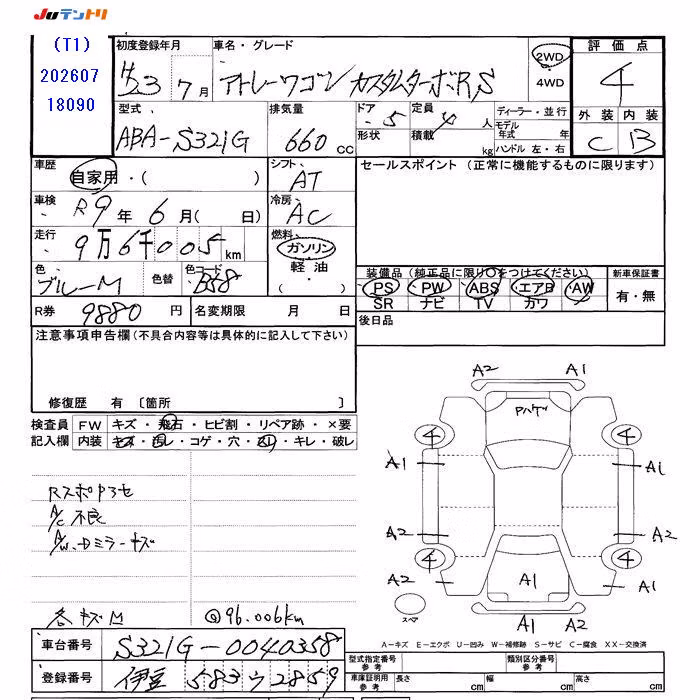 JUテントリ
(T1)
202607
18090
初度登録年月
H23 7月
車名・グレード
アトレーワゴン カスタムターボR,S
2WD
4WD
評価点
4
外装 内装
C B
型式
ABA-S321G
排気量
660 cc
ドア 5
形状
定員 4 人
積載 kg
ディーラー・並行
モデル年式 年
ハンドル 左・右
車歴
自家用・( )
シフト
AT
セールスポイント (正常に機能するものに限ります)
車検
R9年 6月( 日)
冷房
AC
走行
9万6千005km
燃料
ガソリン
軽油
・( )
色
ブルーM
色替
色コード
B58
装備品 (純正品に限り○をつけてください)
PS PW ABS エアB AW
SR ナビ TV カワ
新車保証書
有・無
R券 9880 円
名変期限 月 日
後日品
注意事項申告欄 (不具合内容等は具体的に記入して下さい)
修復歴 有 〔箇所 〕
検査員記入欄
FW キズ・飛石・ヒビ割・リペア跡・×要
内装 キズ・汚レ・コゲ・穴・スリ・キレ・破レ
RスポPヌセ
A/C 不良
A/W、Dミラーキズ
各キズM
@96.006km
A2 A1
Pハゲ
4 4
A1 A1
A2 A2
4 4
A2 A1 A1
A1 A2
スペア
A-キズ E-エクボ U-凹み W-補修跡 S-サビ C-腐食 XX-交換済
車台番号 S321G-0040358
登録番号 伊豆 583 ウ 2859
型式指定番号 参考
類別区分番号 参考
車庫証明用 参考 長さ cm 幅 cm 高さ cm